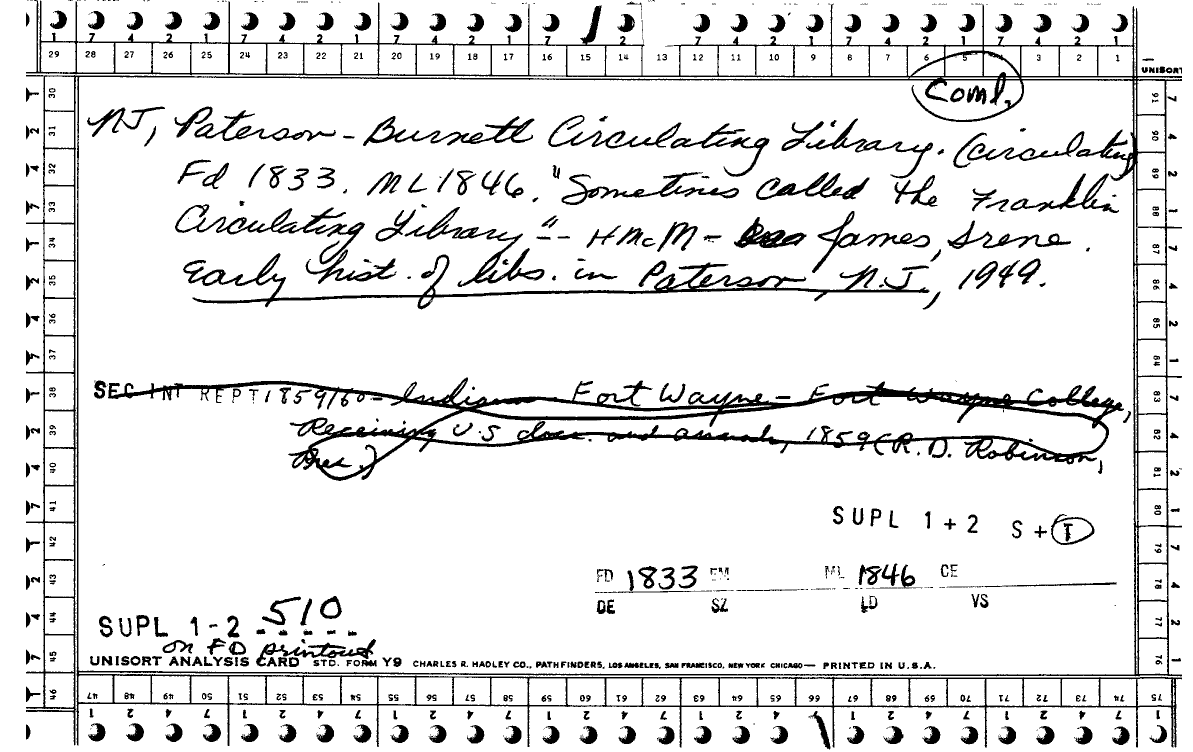 1 7 4 2 1 7 4 2 1 7 4 2 1 7 2 7 4 2 1 7 4 2 1 7 4 2 1
29 28 27 26 25 24 23 22 21 20 19 18 17 16 15 14 13 12 11 10 9 8 7 6 5 4 3 2 1
UNISORT
Coml.
NJ, Paterson - Burnett Circulating Library. (circulating)
Fd 1833. ML 1846. "Sometimes called the Franklin
Circulating Library" - HMcM - James, Irene.
Early hist. of libs. in Paterson, N.J., 1949.
SEC INT REPT 1859/60 - Indiana - Fort Wayne - Fort Wayne College,
Receiving U.S. docs. and annals, 1859 (R.D. Robinson,
Pres.)
SUPL 1+2 S+T
FD 1833 EM ML 1846 CE
DE SZ LD VS
SUPL 1-2 510
on FD printout
UNISORT ANALYSIS CARD STD. FORM Y9 CHARLES R. HADLEY CO., PATHFINDERS, LOS ANGELES, SAN FRANCISCO, NEW YORK CHICAGO — PRINTED IN U.S.A.
30 31 32 33 34 35 36 37 38 39 40 41 42 43 44 45 46
91 90 89 88 87 86 85 84 83 82 81 80 79 78 77 76 75
47 48 49 50 51 52 53 54 55 56 57 58 59 60 61 62 63 64 65 66 67 68 69 70 71 72 73 74
1 2 4 7 1 2 4 7 1 2 4 7 1 2 4 7 1 2 4 7 1 2 4 7 1 2 4 7